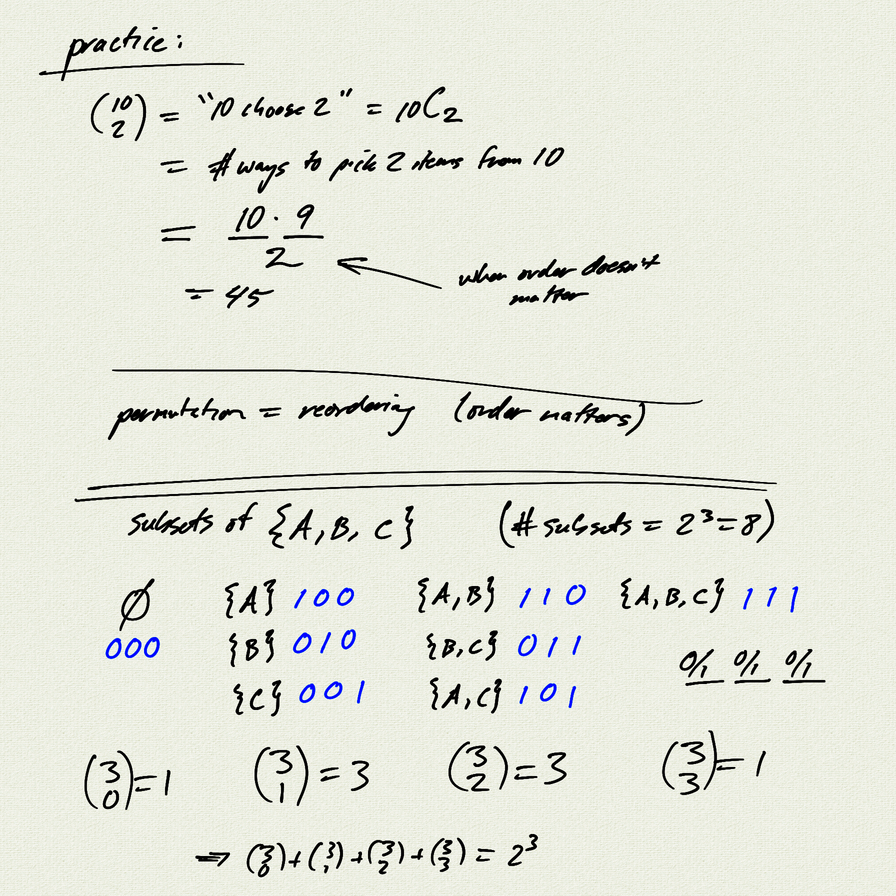 practice:
(10 2) = "10 choose 2" = 10C2
= # ways to pick 2 items from 10
= 10 · 9 / 2
when order doesn't
matter
= 45
permutation = reordering (order matters)
subsets of {A, B, C} (# subsets = 2³ = 8)
∅ {A} 100 {A,B} 110 {A,B,C} 111
000 {B} 010 {B,C} 011
0/1 0/1 0/1
{C} 001 {A,C} 101
(3 0) = 1 (3 1) = 3 (3 2) = 3 (3 3) = 1
⇒ (3 0) + (3 1) + (3 2) + (3 3) = 2³